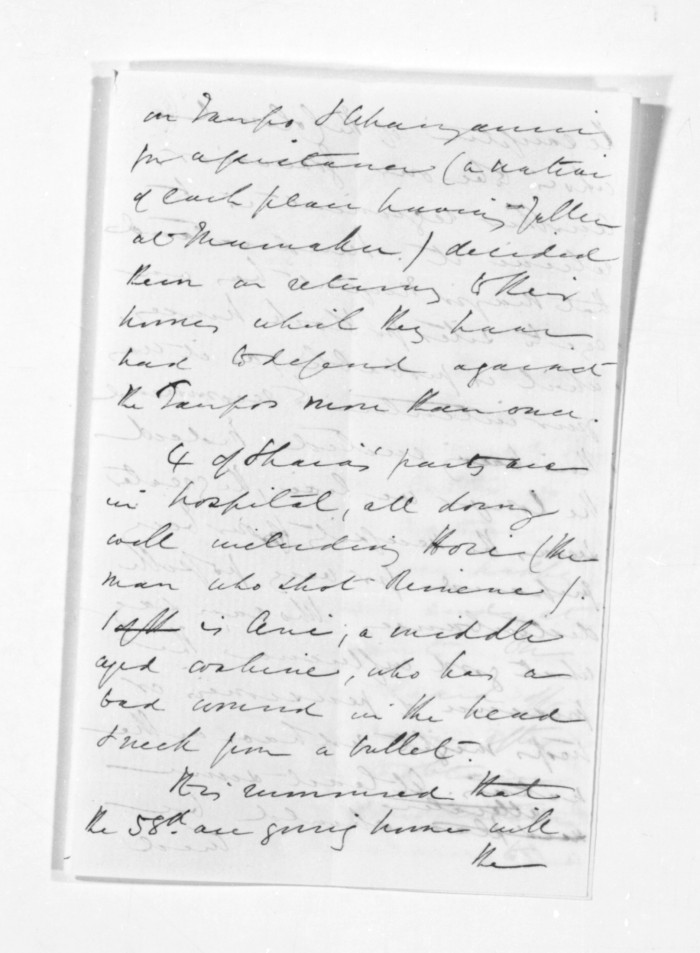 on Taupo & Whanganui
for assistance (a native
of each place having fallen
at Mumaku.) decided
them on returning to their
homes which they have
had to defend against
the Taupos more than once.
4 of Ihaia's party are
in hospital, all doing
well including Hori (the
man who shot Rimene).
1 of th is Arei, a middle
aged wahine, who has a
bad wound in the head
& neck from a bullet.
It is rumoured that
the 58th. are going home will
the